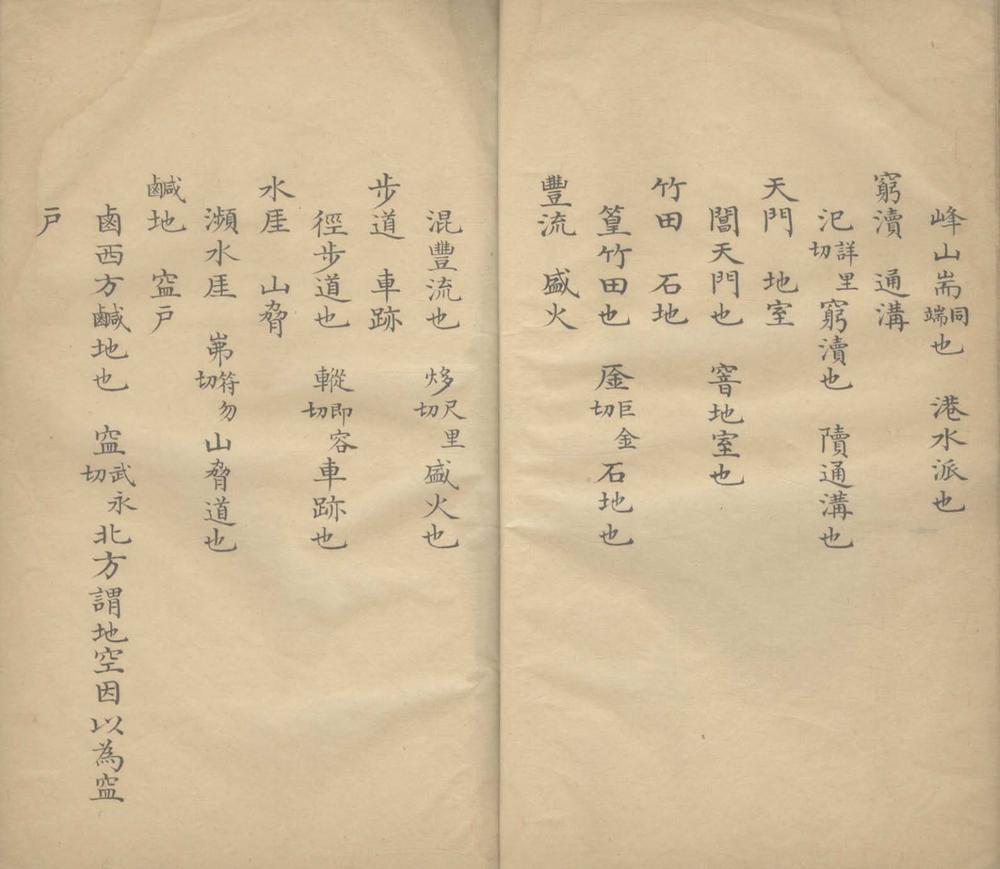 峰山耑同端也 港水派也
窮瀆 通溝
汜詳里切窮瀆也 隫通溝也
天門 地室
閶天門也 窨地室也
竹田 石地
篁竹田也 崟巨金切石地也
豐流 盛火
混豐流也 㶴尺里切盛火也
步道 車跡
徑步道也 䡮即容切車跡也
水厓 山脅
瀕水厓 岪符勿切山脅道也
鹹地 窋戶
鹵西方鹹地也 窋武永切北方謂地空因以為窋
戶